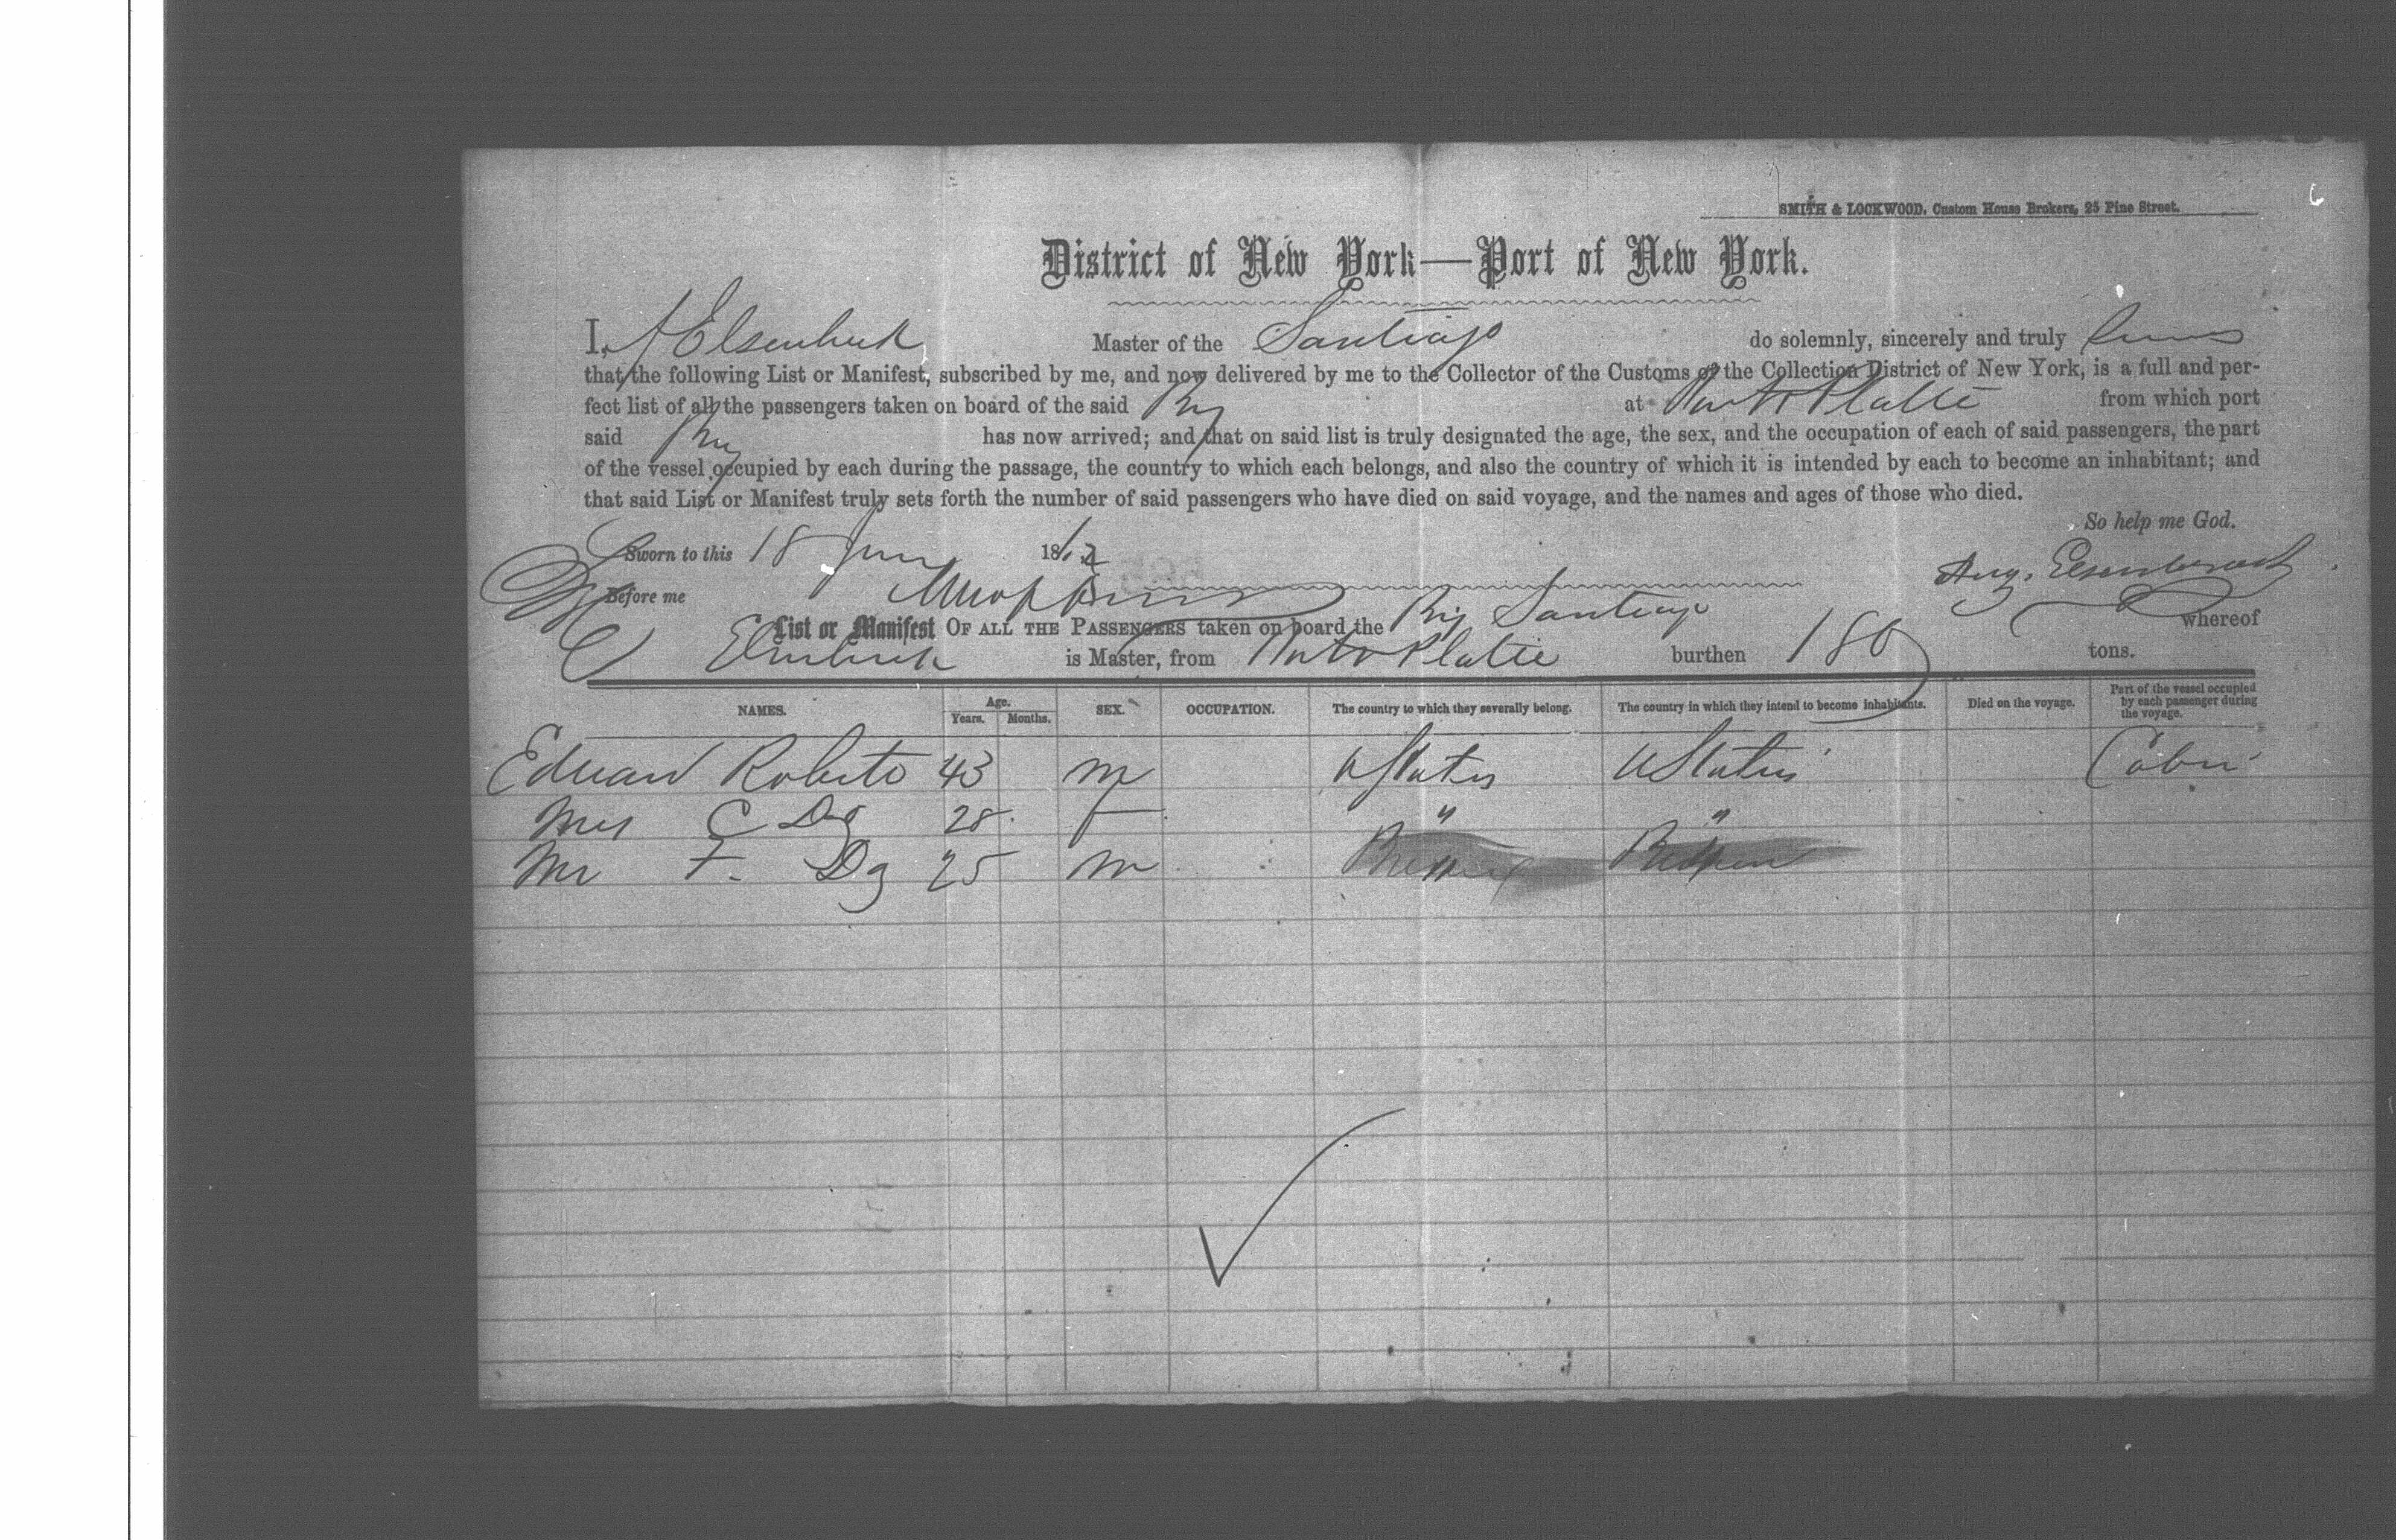 6
SMITH & LOCKWOOD, Custom House Brokers, 25 Pine Street.
District of New York—Port of New York.
I, A Elsenbeck Master of the Santiago do solemnly, sincerely and truly
that the following List or Manifest, subscribed by me, and now delivered by me to the Collector of the Customs of the Collection District of New York, is a full and per-
fect list of all the passengers taken on board of the said Brig at Porto Platte from which port
said Brig has now arrived; and that on said list is truly designated the age, the sex, and the occupation of each of said passengers, the part
of the vessel occupied by each during the passage, the country to which each belongs, and also the country of which it is intended by each to become an inhabitant; and
that said List or Manifest truly sets forth the number of said passengers who have died on said voyage, and the names and ages of those who died.
So help me God.
Sworn to this 18 June 18
Before me
Aug.
List or Manifest OF ALL THE PASSENGERS taken on board the Brig Santiago whereof
is Master, from Porto Platte burthen 180 tons.
NAMES. Age. Years. Months. SEX. OCCUPATION. The country to which they severally belong. The country in which they intend to become inhabitants. Died on the voyage. Part of the vessel occupied by each passenger during the voyage.
Edward Roberts 43 m U States U States Cabin
Mrs C Do 28 f " "
Mr F. Do 25 m " "